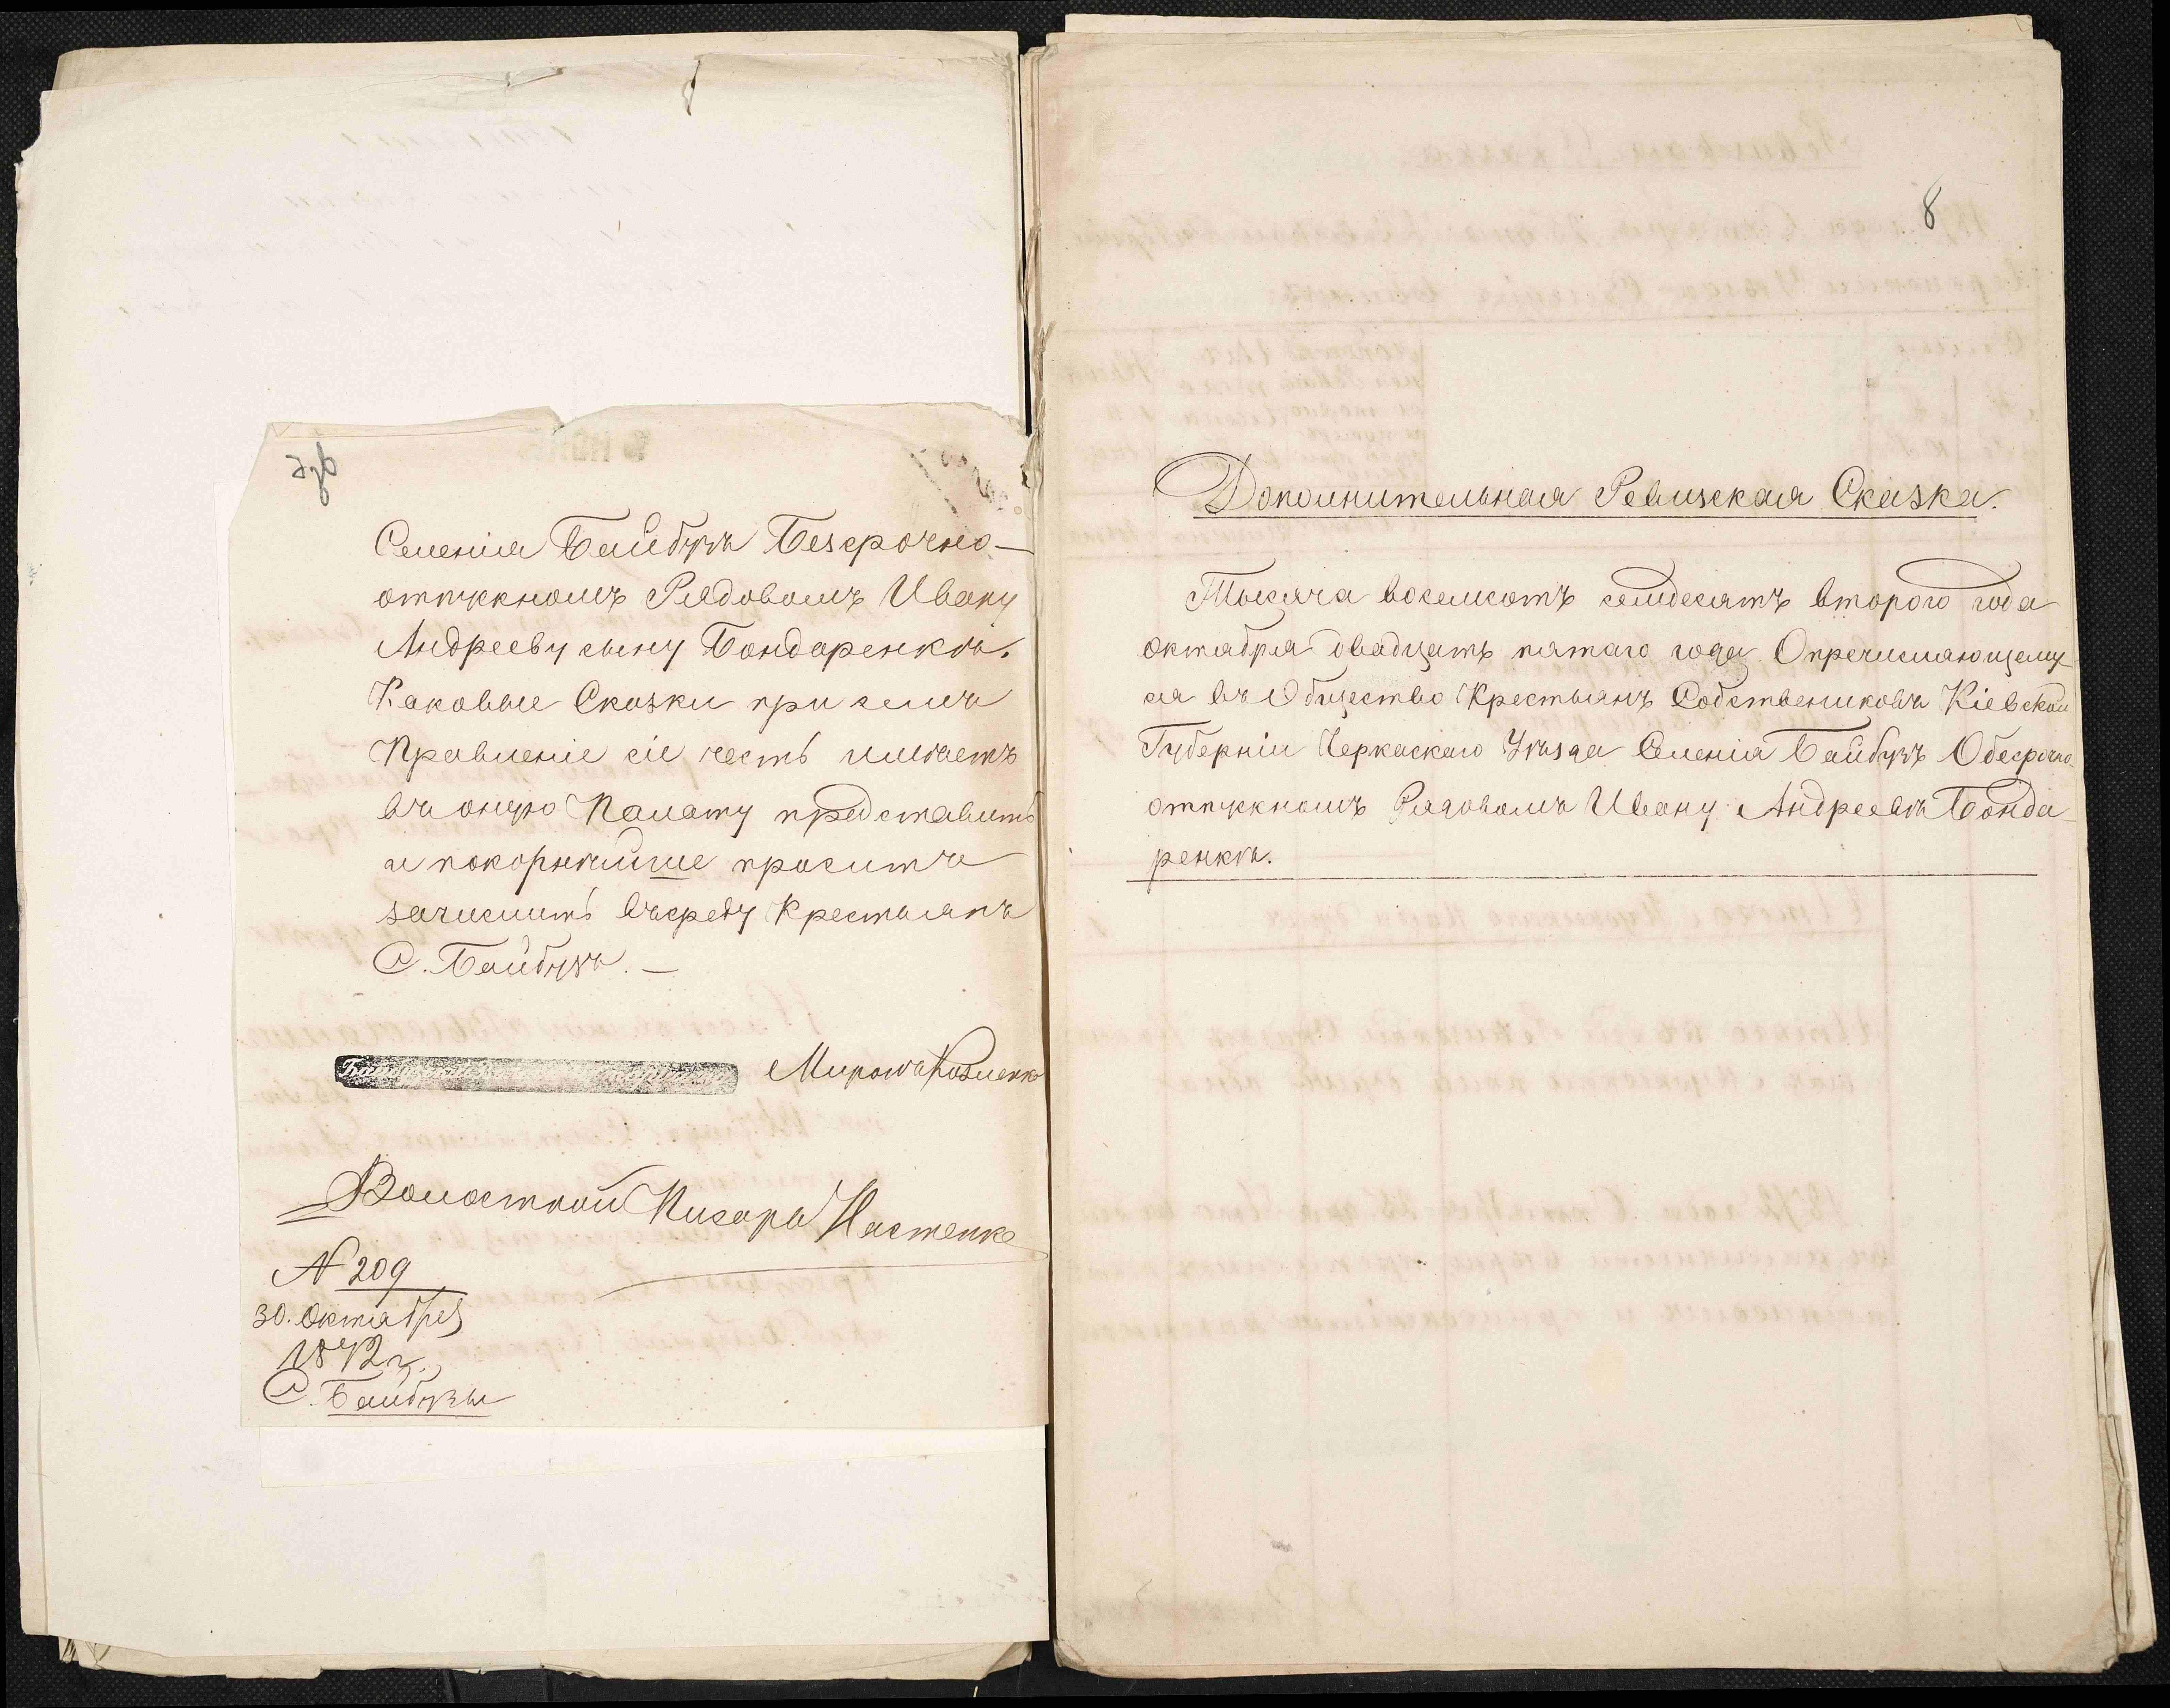 Селенія Байбузъ Безсрочно-
отпускномъ Рядовомъ Ивану
Андрееву сыну Бондаренкѣ.
Каковые Сказки при семъ
Правленіе сіе честь имѣетъ
въ оную Палату представить
и покорнѣйше проситъ
зачислить въсреду Крестьянъ
С. Байбузъ. —
Миронъ Козленко
Волостной Писарь Настенко
№ 209
30. Октября
1872 г.
С. Байбузы
8
Дополнительная Ревизская Сказка.
Тысяча восемсотъ семдесятъ второго года
октабря двадцать пятаго года Опречисляющему
ся въ Общество Крестьянъ Собствениковъ Кіевской
Губерніи Черкаскаго Уѣзда Селенія Байбузъ Обесрочно-
отпускномъ Рядовомъ Ивану Андреевѣ Бонда-
ренкѣ.